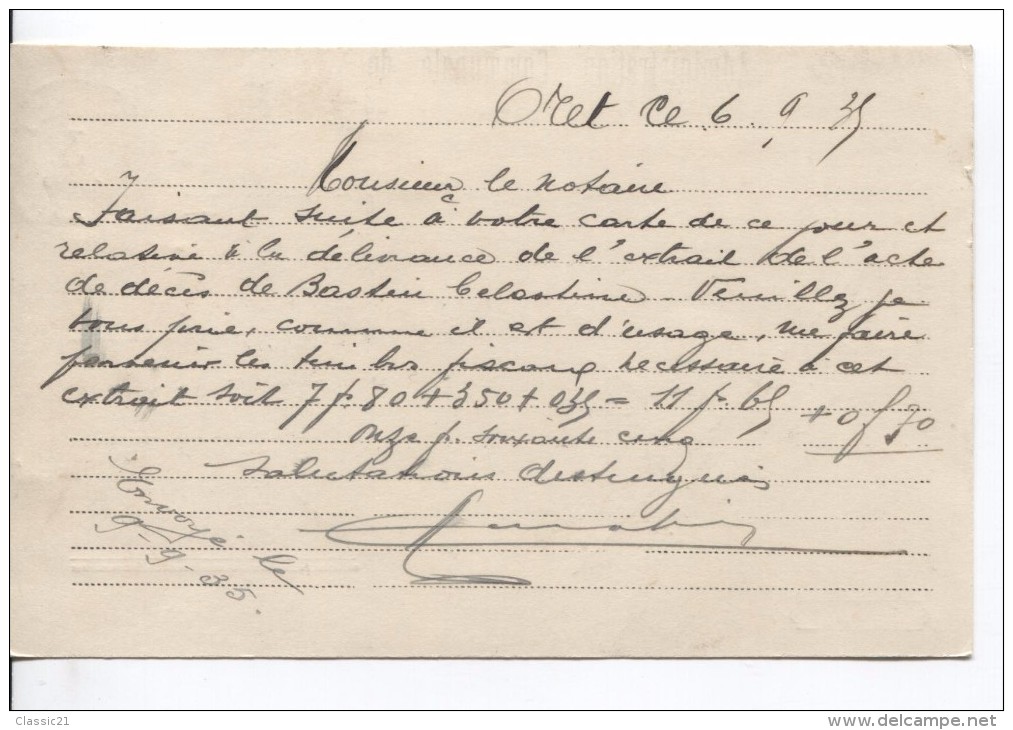 Oret Ce 6. 9 35
Monsieur le notaire
Faisant suite à votre carte de ce jour et
relative à la délivrance de l'extrait de l'acte
de décès de Bastin Celestine. Veuillez je
vous prie, comme il est d'usage, me faire
parvenir les timbres fiscaux necessaire à cet
extrait soit 7 f. 80 + 3 50 + 0 35 = 11 f. 65 + 0 f 70
onze f. soixante cinq
Salutations distinguées
Envoyé le
9-9-35.
Classic21
www.delcampe.net